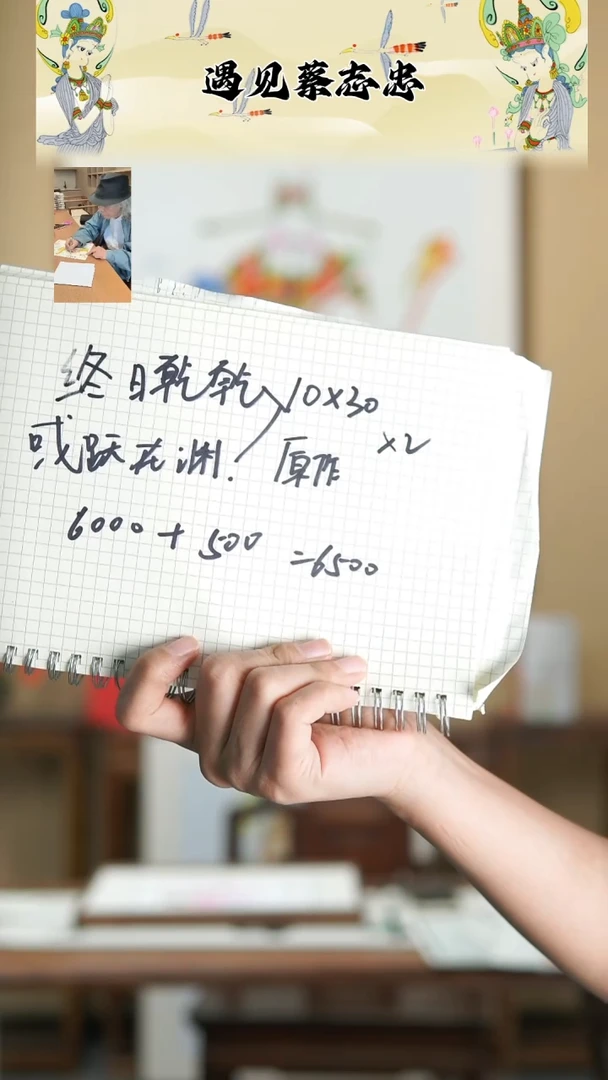 遇见蔡志忠
终日乾乾 10×30
或跃在渊. 原作 ×2
6000+500=6500